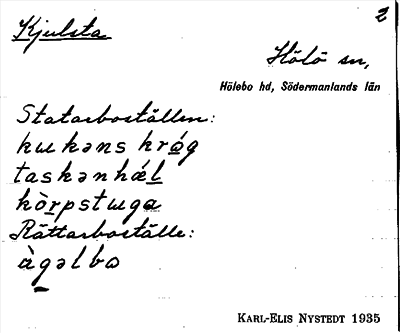 Kjulsta
2
Hölö sn,
Hölebo hd, Södermanlands län
Statarboställen:
kɯkəns króg
taskənhǽl
kòrpstɯga
Rättarboställe:
àgəlbo
KARL-ELIS NYSTEDT 1935